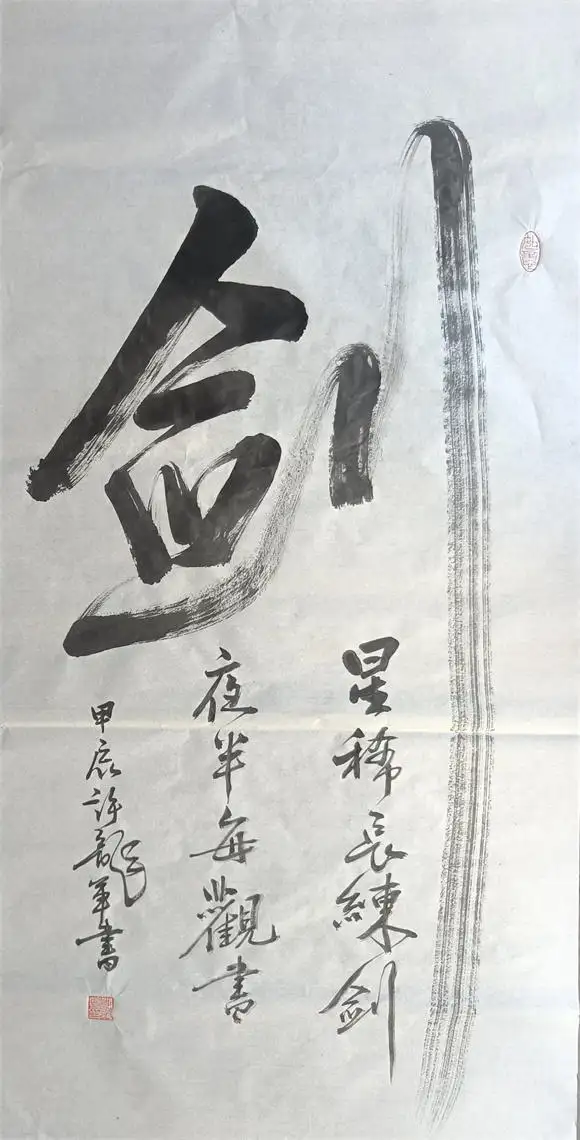 剑
星稀长練剑
夜半每觀書
甲辰许龍軍書